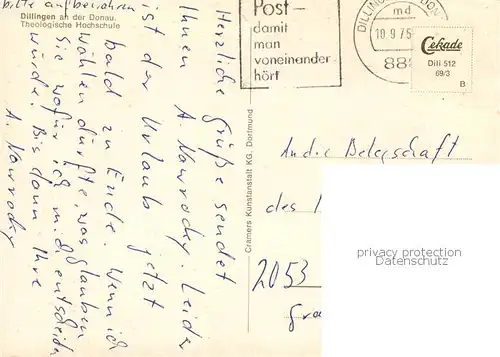 bitte aufbewahren
Dillingen an der Donau.
Theologische Hochschule
Herzliche Grüße sendet
Ihnen A. Leider
ist der Urlaub jetzt
bald zu Ende. Wenn ich
wählen dürfte, was glauben
Sie wofür ich m. d. entscheiden
würde. Bis dann Ihre
A.
Post –
damit
man
voneinander
hört
DILLINGEN
md
10.9.75
888
Cekade
Dili 512
69/3
B
Cramers Kunstanstalt KG. Dortmund
An die Belegschaft
des
2053
privacy protection
Datenschutz